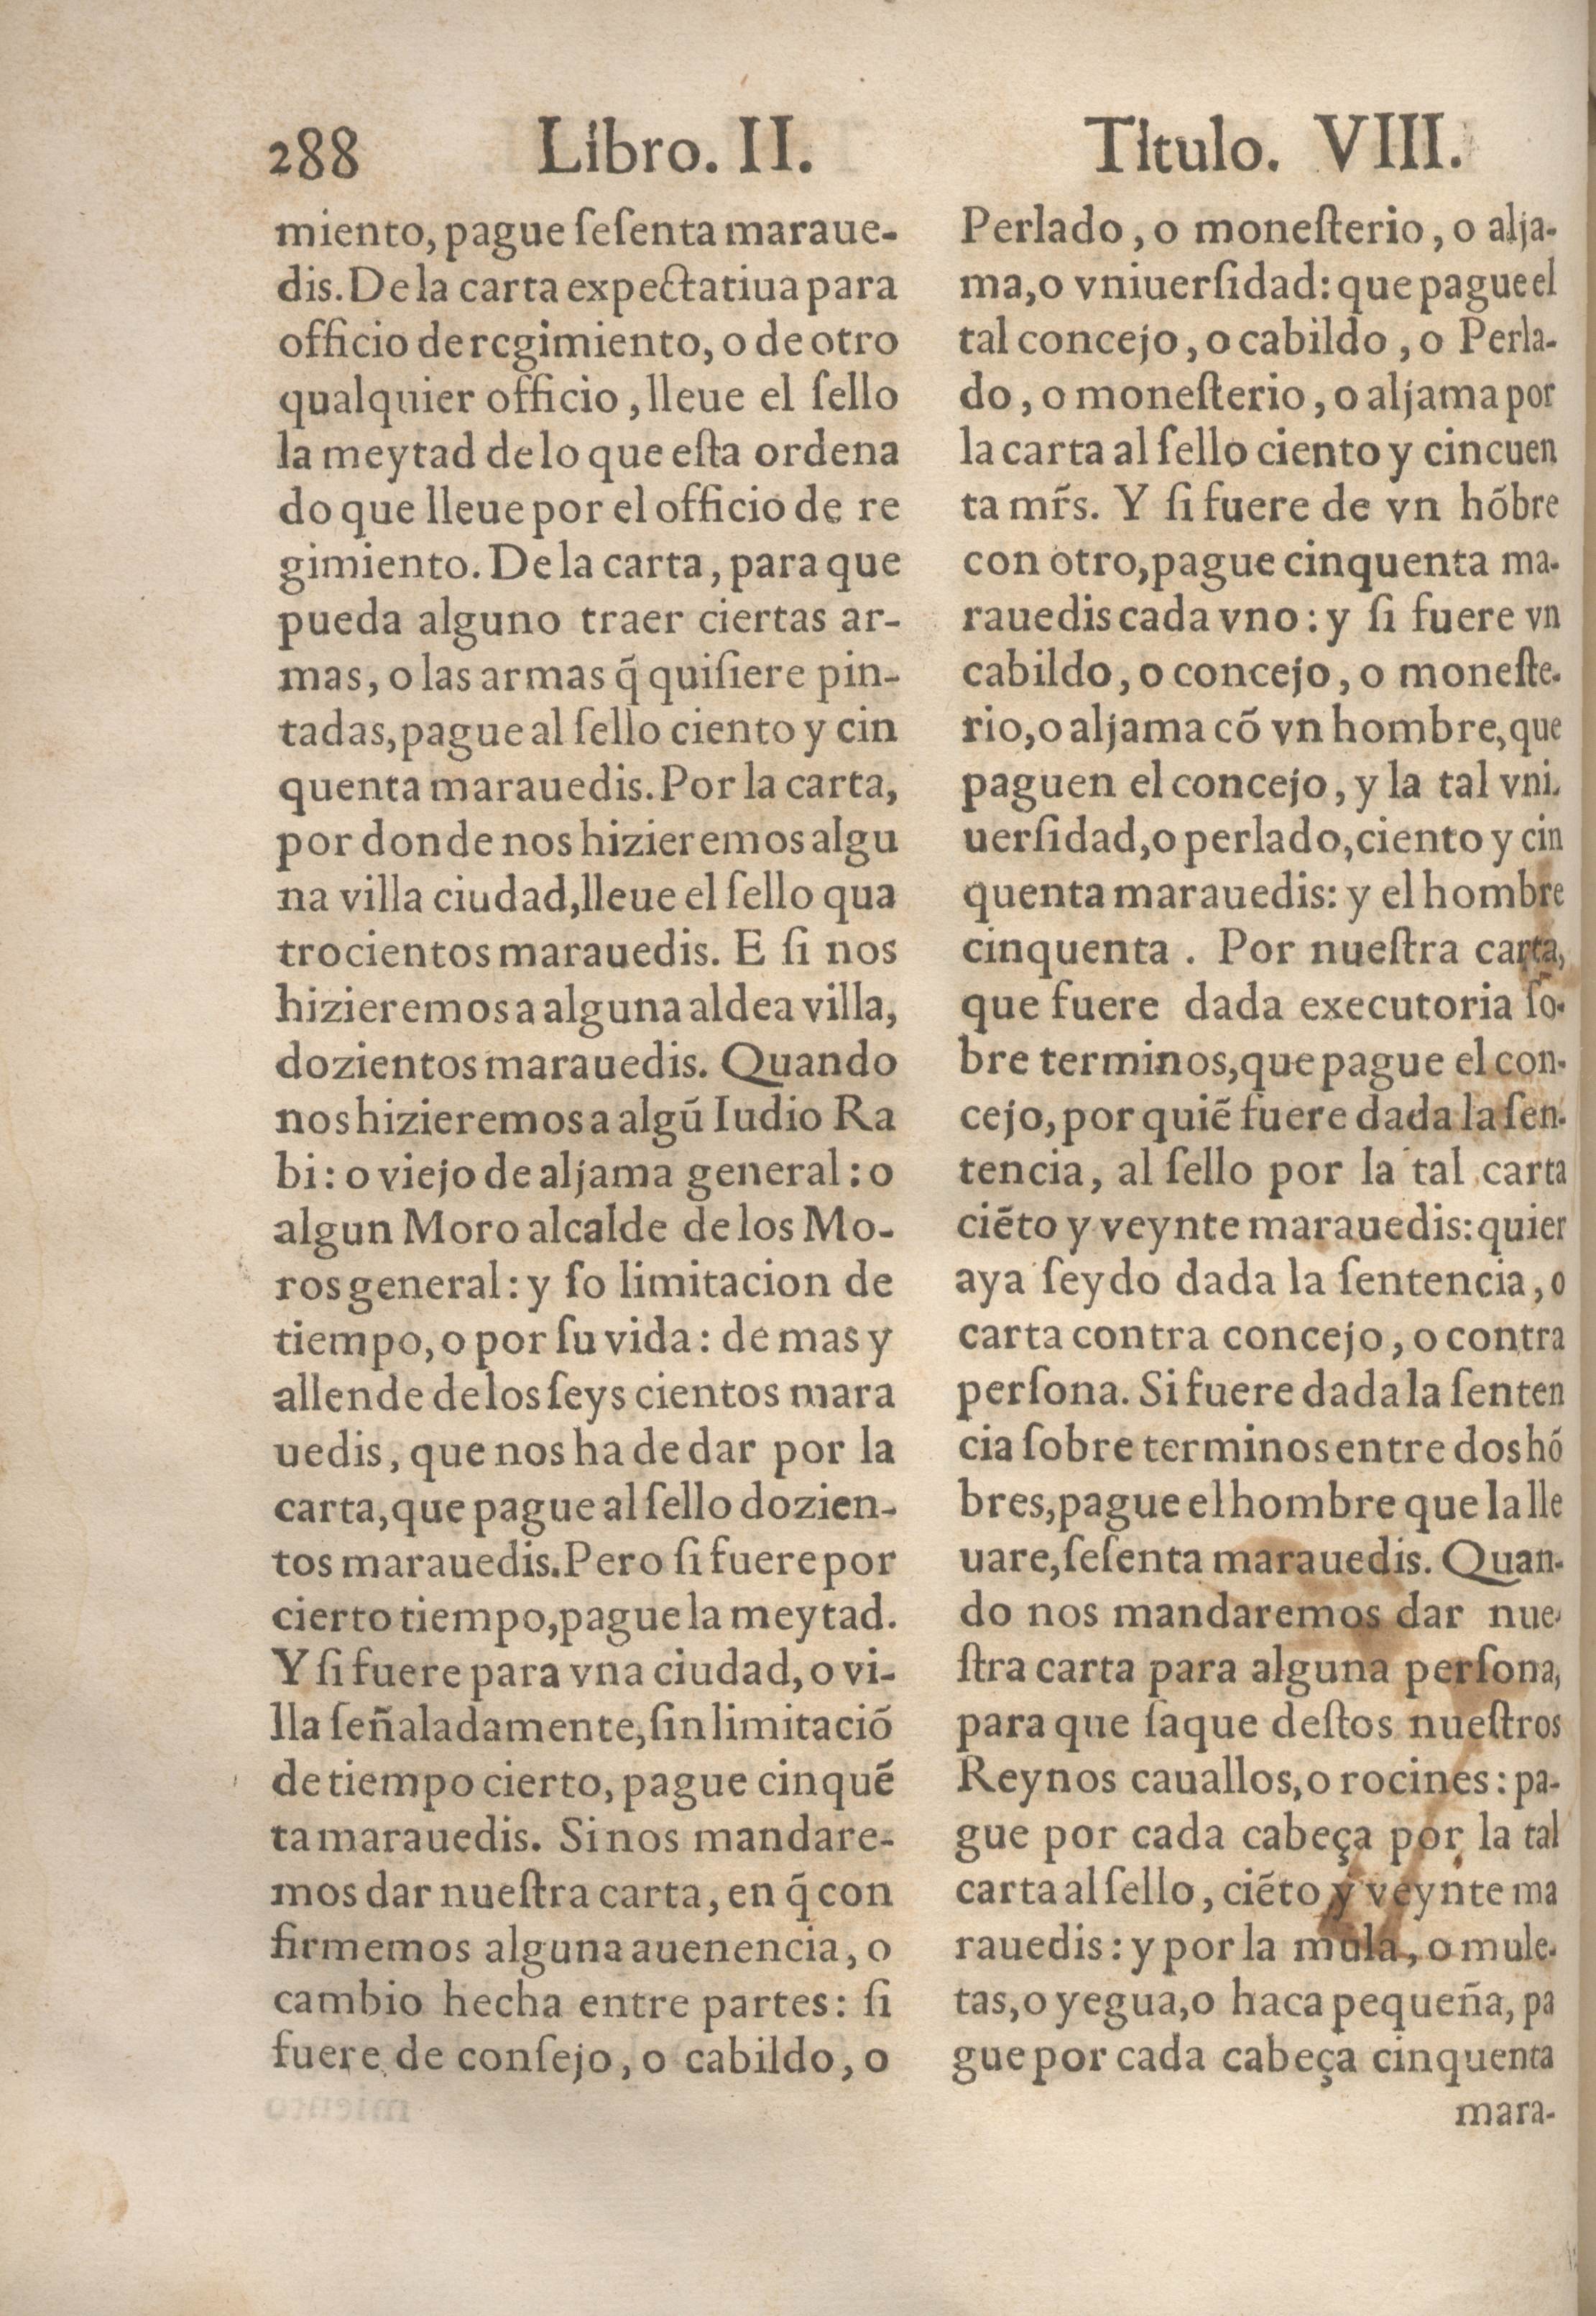 288 Libro. II. Titulo. VIII.
miento, pague ſeſenta maraue-
dis. De la carta expectatiua para
officio de rcgimiento, o de otro
qualquier officio, lleue el ſello
la meytad de lo que eſta ordena
do que lleue por el officio de re
gimiento. De la carta, para que
pueda alguno traer ciertas ar-
mas, o las armas q̃ quiſiere pin-
tadas, pague al ſello ciento y cin
quenta marauedis. Por la carta,
por donde nos hizieremos algu
na villa ciudad, lleue el ſello qua
trocientos marauedis. E ſi nos
hizieremos a alguna aldea villa,
dozientos marauedis. Quando
nos hizieremos a algũ Iudio Ra
bi: o viejo de aljama general: o
algun Moro alcalde de los Mo-
ros general: y ſo limitacion de
tiempo, o por ſu vida: de mas y
allende de los ſeys cientos mara
uedis, que nos ha de dar por la
carta, que pague al ſello dozien-
tos marauedis. Pero ſi fuere por
cierto tiempo, pague la meytad.
Y ſi fuere para vna ciudad, o vi-
lla ſeñaladamente, ſin limitaciõ
de tiempo cierto, pague cinquẽ
ta marauedis. Si nos mandare-
mos dar nueſtra carta, en q̃ con
firmemos alguna auenencia, o
cambio hecha entre partes: ſi
fuere de conſejo, o cabildo, o
Perlado, o moneſterio, o alja-
ma, o vniuerſidad: que pague el
tal concejo, o cabildo, o Perla-
do, o moneſterio, o aljama por
la carta al ſello ciento y cincuen
ta mr̃s. Y ſi fuere de vn hõbre
con otro, pague cinquenta ma-
rauedis cada vno: y ſi fuere vn
cabildo, o concejo, o moneſte-
rio, o aljama cõ vn hombre, que
paguen el concejo, y la tal vni-
uerſidad, o perlado, ciento y cin
quenta marauedis: y el hombre
cinquenta. Por nueſtra carta,
que fuere dada executoria ſo-
bre terminos, que pague el con-
cejo, por quiẽ fuere dada la ſen-
tencia, al ſello por la tal carta
ciẽto y veynte marauedis: quier
aya ſeydo dada la ſentencia, o
carta contra concejo, o contra
perſona. Si fuere dada la ſenten
cia ſobre terminos entre dos hõ
bres, pague el hombre que la lle
uare, ſeſenta marauedis. Quan-
do nos mandaremos dar nue-
ſtra carta para alguna perſona,
para que ſaque deſtos nueſtros
Reynos cauallos, o rocines: pa-
gue por cada cabeça por la tal
carta al ſello, ciẽto y veynte ma
rauedis: y por la mula, o mule-
tas, o yegua, o haca pequeña, pa
gue por cada cabeça cinquenta
mara-